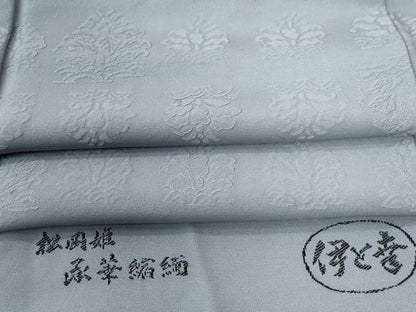 松岡姫
承華縮緬
伊と幸